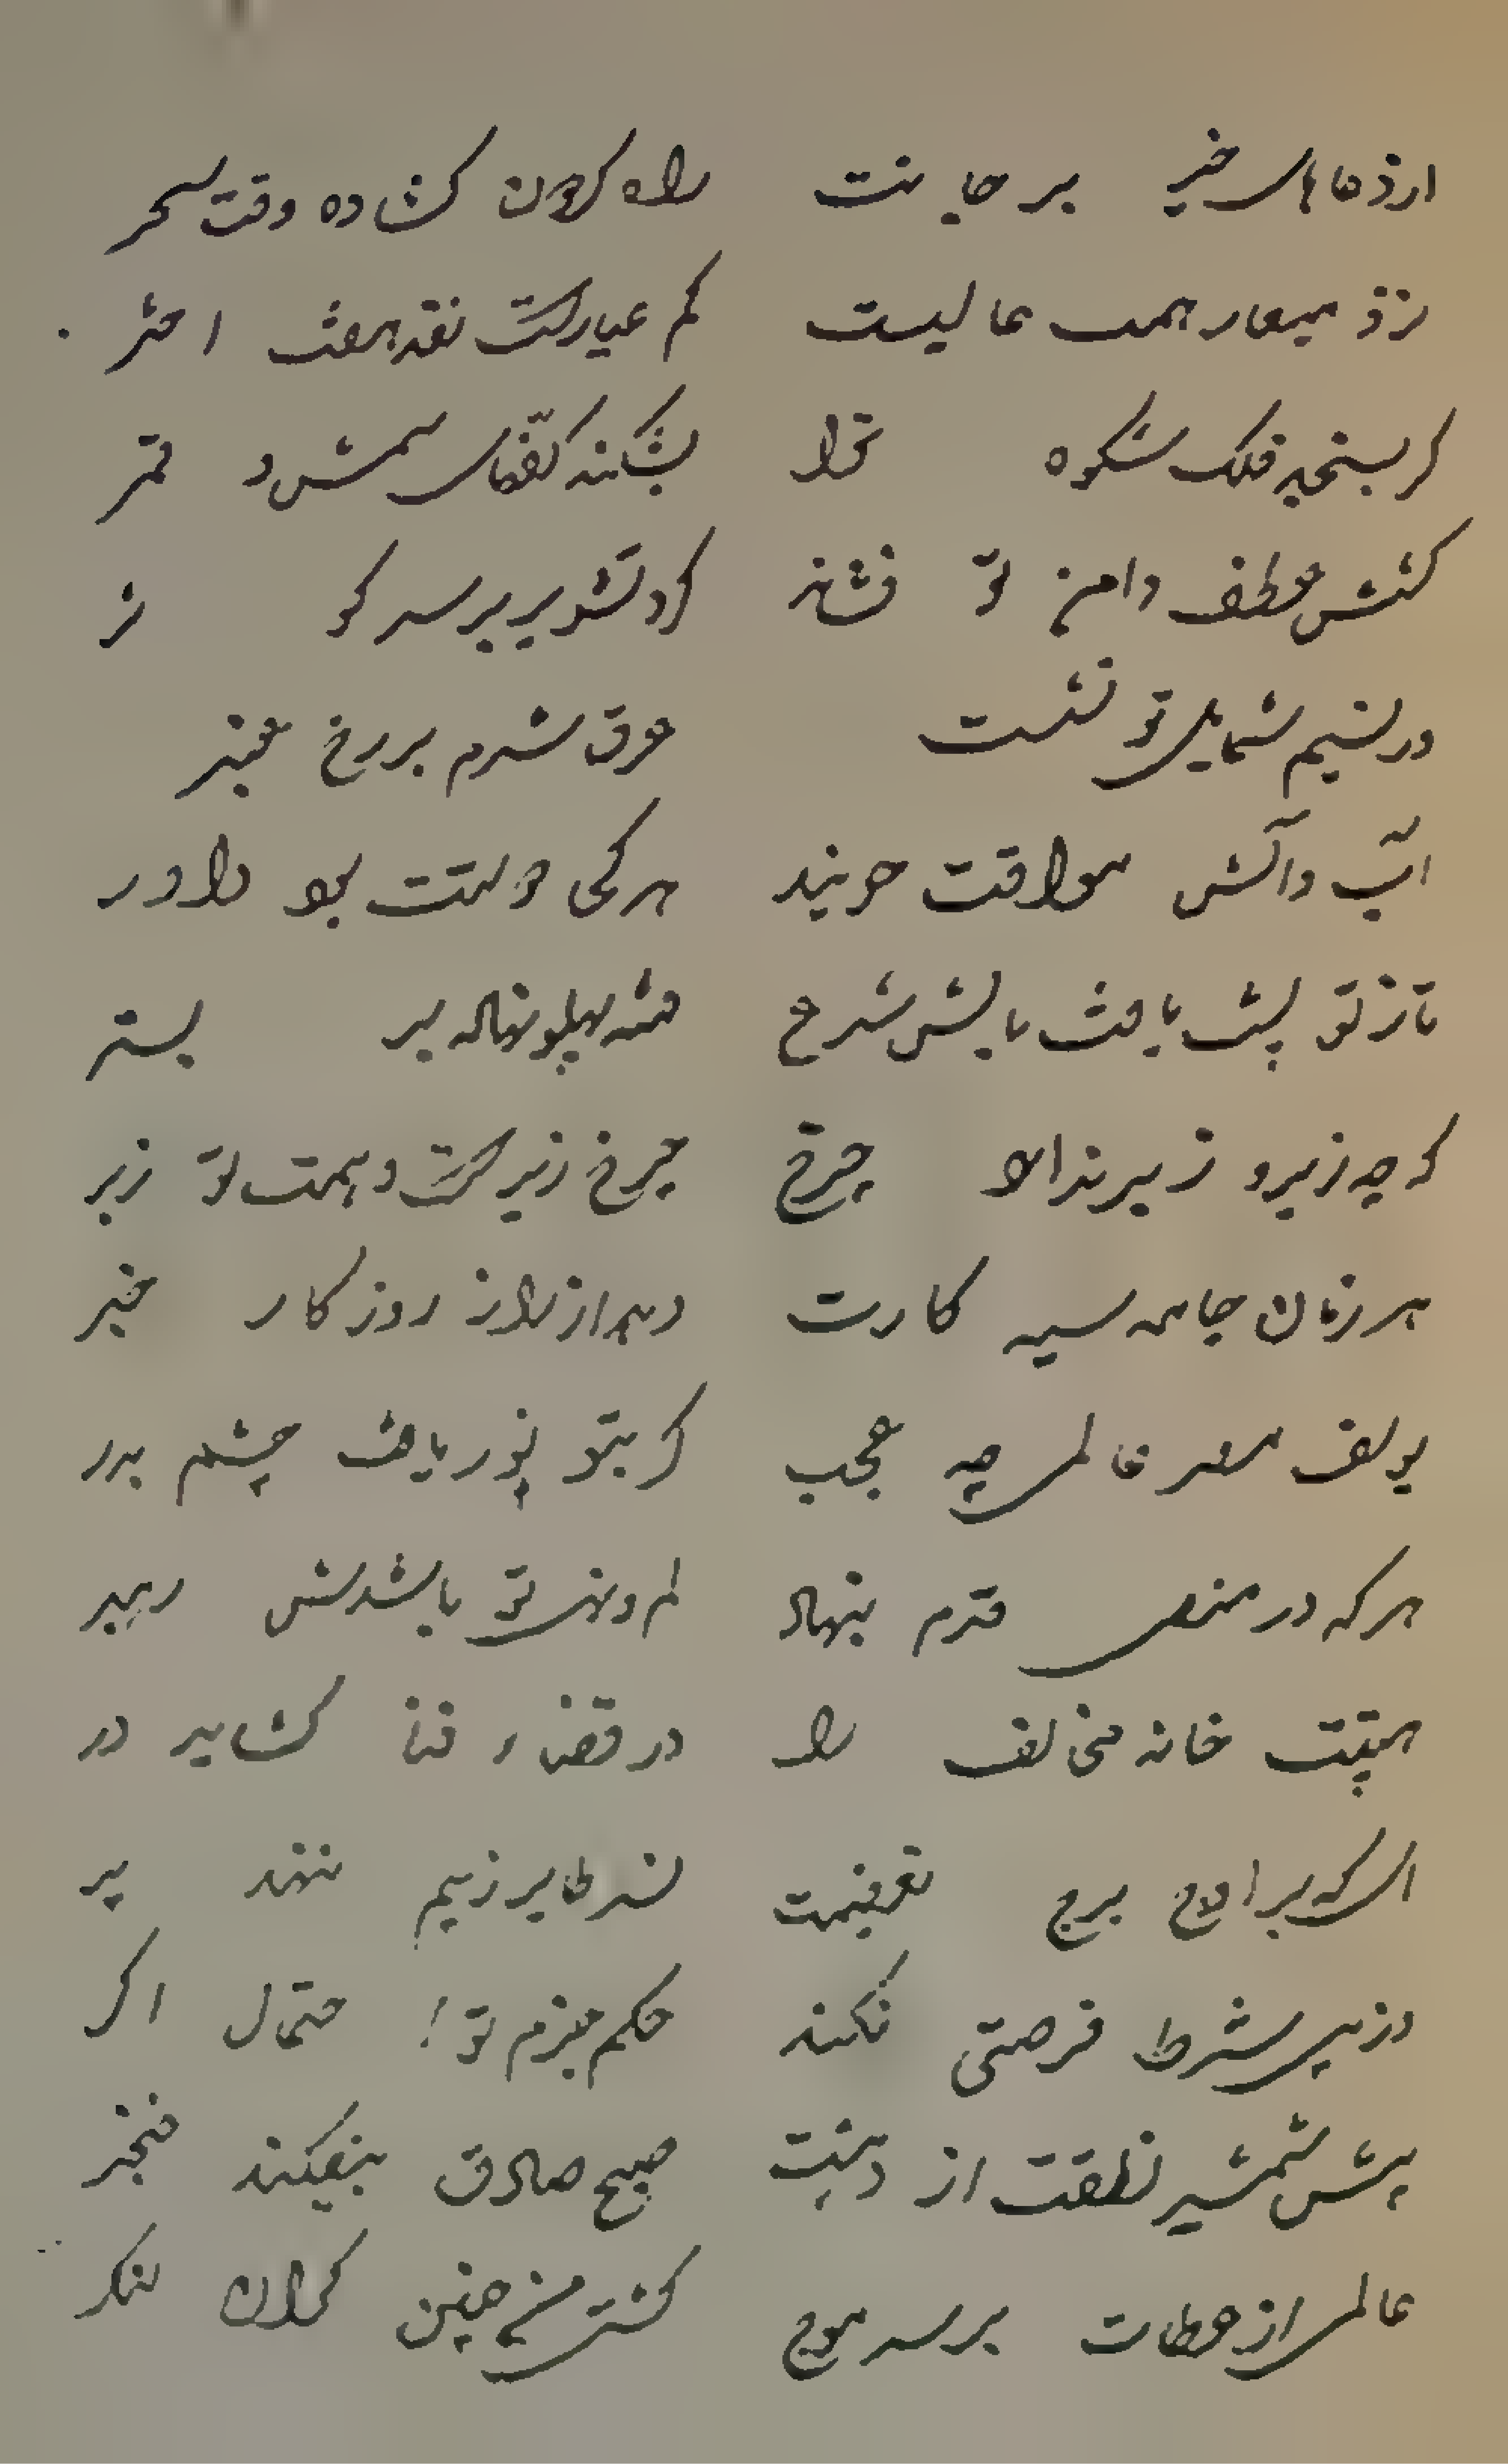 از دعاهای خیر بر جانت راه گردون گشاده وقت سحر
نزد معیار همت عالیست کم عیارست نقد هفت اختر
گر بسنجد فلک شکوه ترا بشکند کفهای شمس و قمر
کفش عطف دامن تو فشاند گرد تشویر بر سر کوثر
در نسیم شمایل تو نشست عرق شرم بر رخ عنبر
آب و آتش موافقت جویند هر کجا دولتت بود داور
تا ز تو پشت یافت بالش شرع فتنه پهلو نهاد بر بستر
گرچه زیر و زبر نداند چرخ چرخ زیرست و همت تو زبر
هر زمان جامه سیه کارت دهد از راز روزگار خبر
یوسف مصر عالمی چه عجب گر بتو نور یافت چشم پدر
هر که در منصبی قدم بنهاد امر و نهی تو باشدش رهبر
هیبتت خانه مخالف را در قضاء فنا گشاید در
بر اوج برج نسر طایر ز بیم ننهد پر
شرط فرصتی نکند حکم جزم تو احتمال اگر
پیش شمشیر نطقت از دهشت صبح صادق بیفکند خنجر
عالمی از عطات بر سر موج کشتی چنین گران لنگر